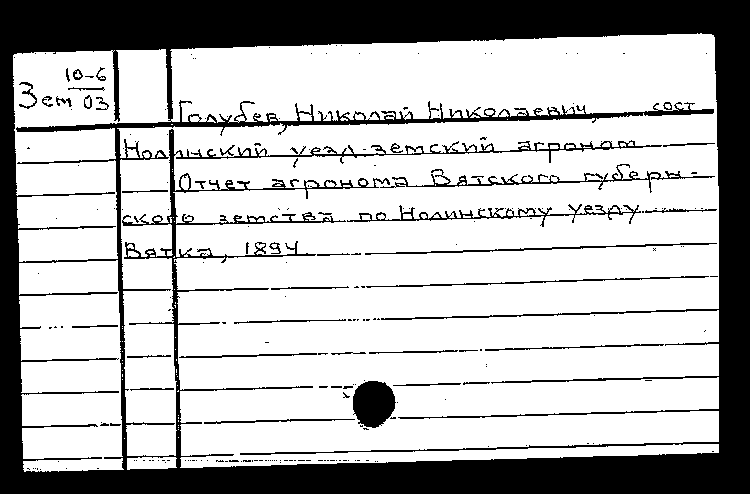 10-6
Зем 03
Голубев, Николай Николаевич, сост
Нолинский уезд. земский агроном
Отчет агронома Вятского губерн-
ского земства по Нолинскому уезду
Вятка, 1894.